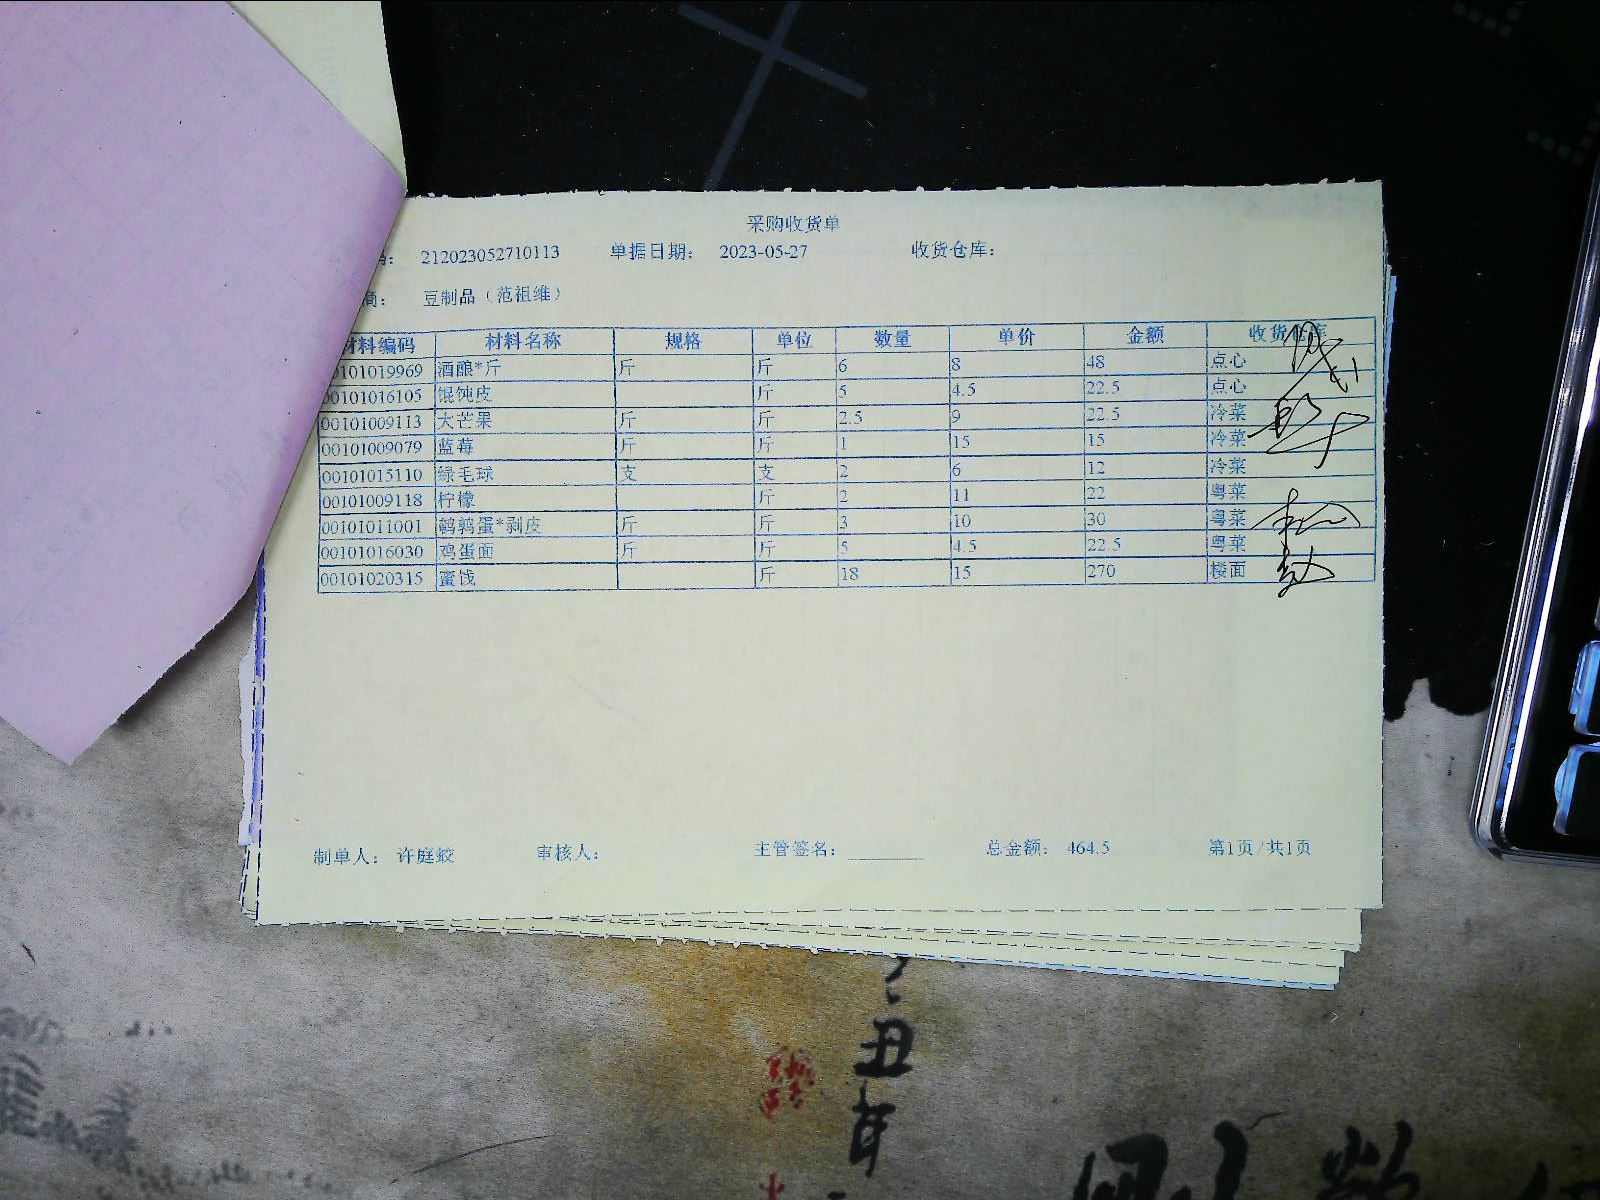 采购收货单
码： 212023052710113 单据日期： 2023-05-27 收货仓库：
商： 豆制品（范祖维）
材料编码 材料名称 规格 单位 数量 单价 金额 收货仓库
00101019969 酒酿*斤 斤 斤 6 8 48 点心
00101016105 馄饨皮 斤 5 4.5 22.5 点心
00101009113 大芒果 斤 斤 2.5 9 22.5 冷菜
00101009079 蓝莓 斤 斤 1 15 15 冷菜
00101015110 绿毛球 支 支 2 6 12 冷菜
00101009118 柠檬 斤 2 11 22 粤菜
00101011001 鹌鹑蛋*剥皮 斤 斤 3 10 30 粤菜
00101016030 鸡蛋面 斤 斤 5 4.5 22.5 粤菜
00101020315 蜜饯 斤 18 15 270 楼面
制单人： 许庭蛟 审核人： 主管签名： 总金额： 464.5 第1页/共1页
丑年